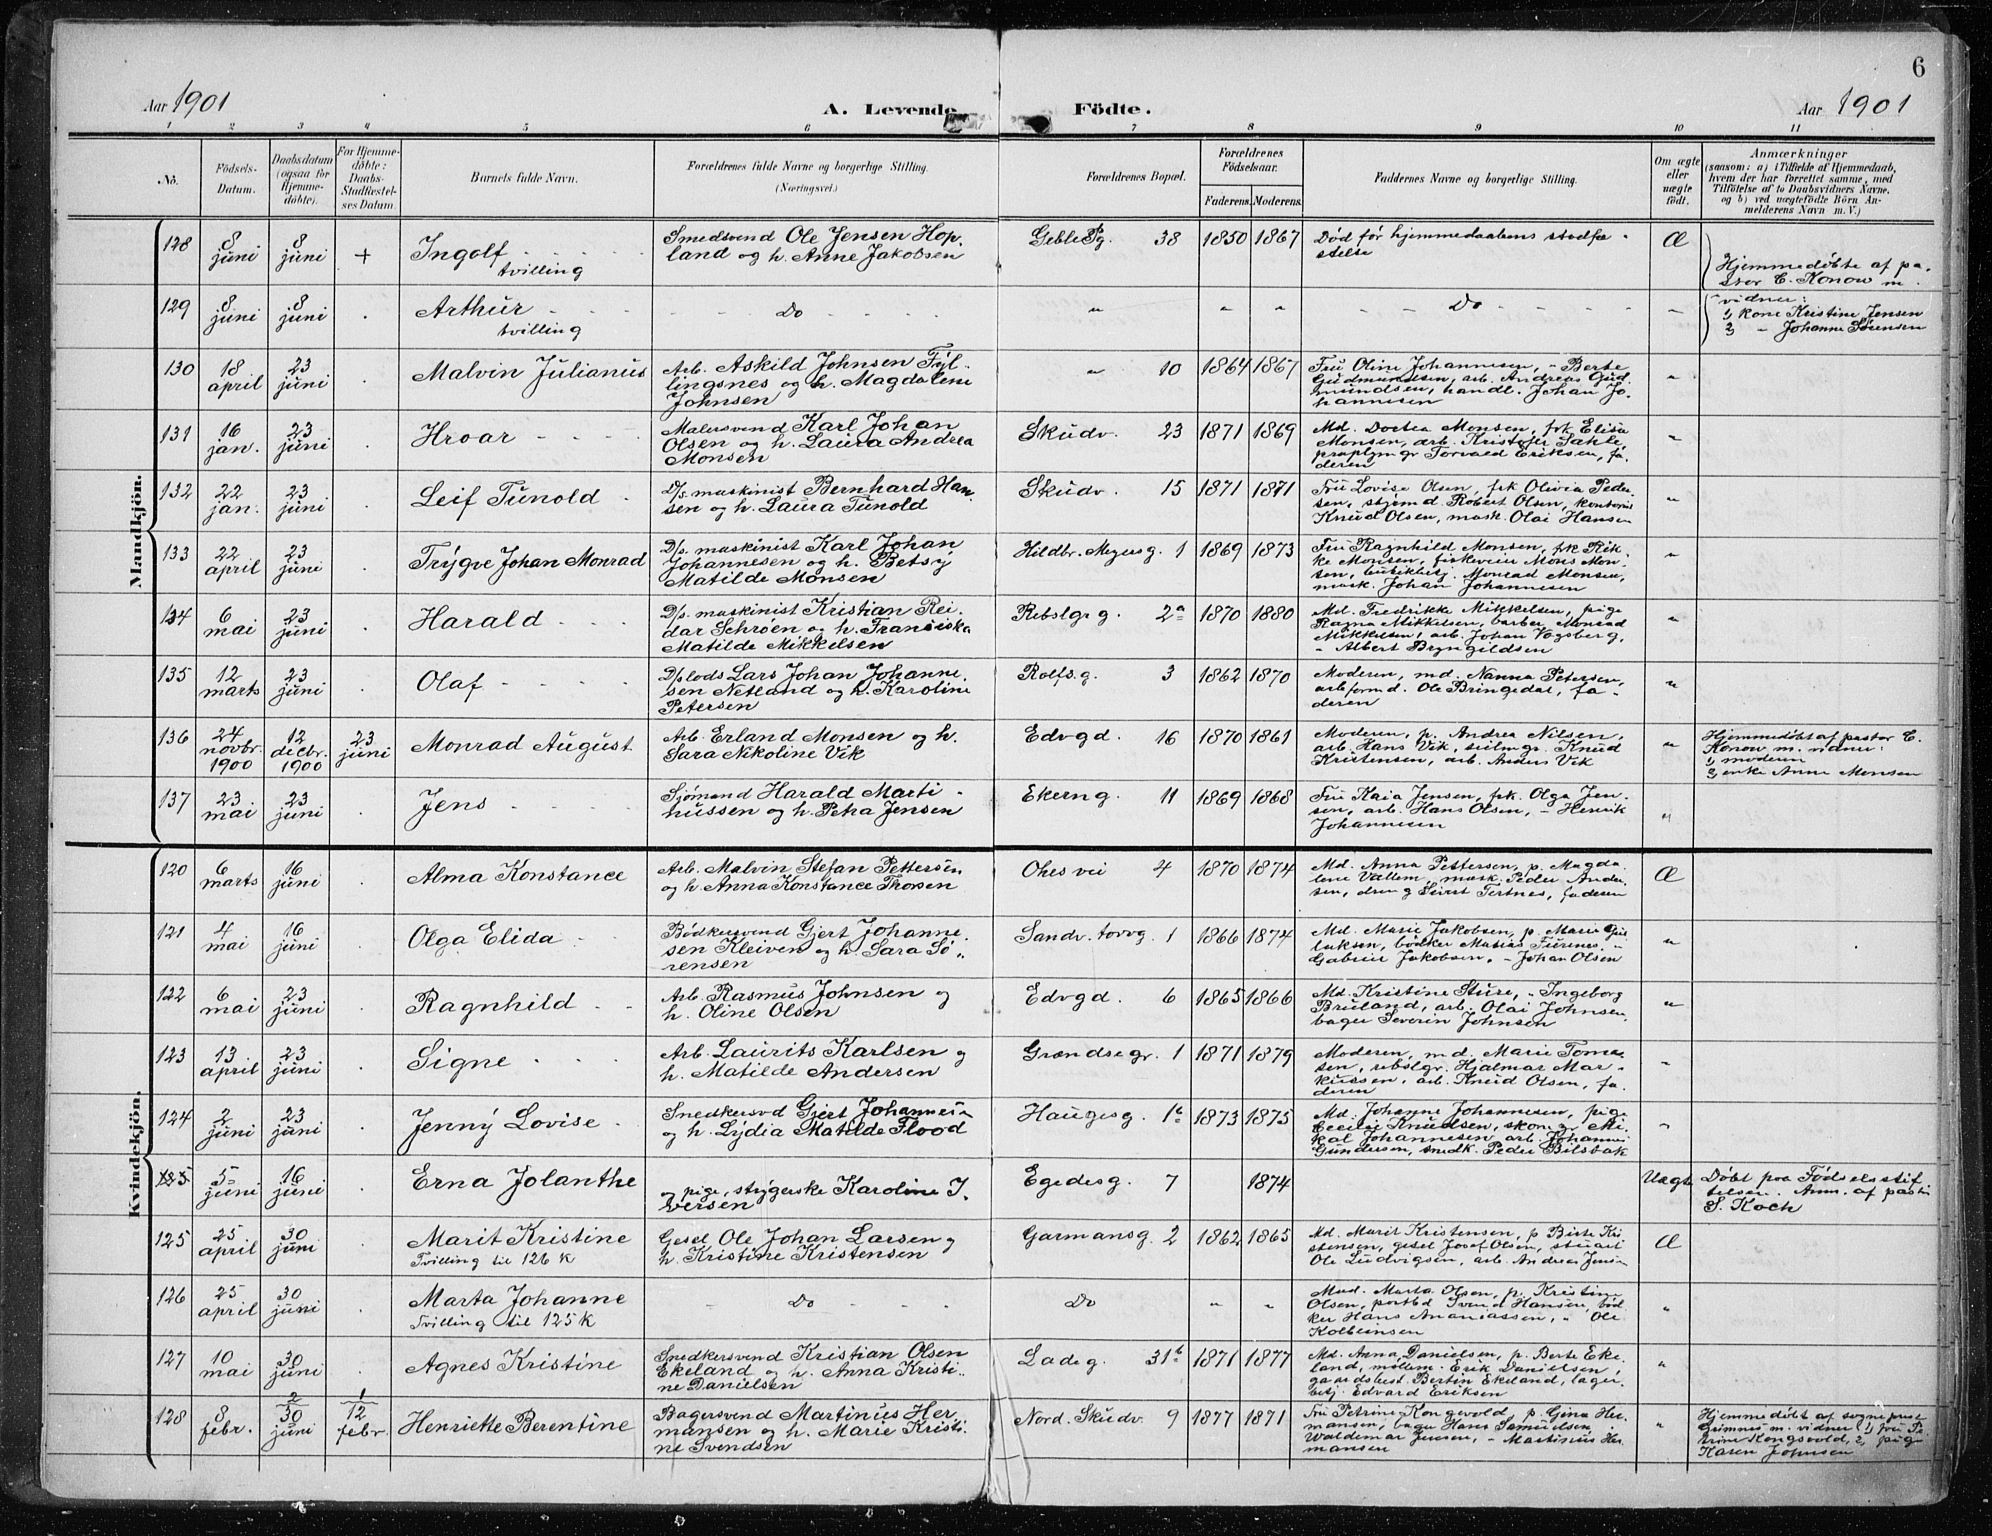 6
Aar 1901
A. Levende
Födte.
Aar 1901
1 2 3 4 5 6 7 8 9 10 11
No.
Födsels-
Datum.
Daabsdatum
(ogsaa for
Hjemme-
döbte).
For Hjemme-
döbte:
Daabs-
Stadfæstel-
ses Datum.
Barnets fulde Navn.
Forældrenes fulde Navne og borgerlige Stilling.
(Næringsvei.)
Forældrenes Bopæl.
Forældrenes
Födselsaar.
Faderens. Moderens.
Faddernes Navne og borgerlige Stilling.
Om ægte
eller
uægte
födt.
Anmærkninger
(saasom: a) i Tilfælde af Hjemmedaab,
hvem der har forrettet samme, med
Tilföielse af to Daabsvidners Navne,
og b) ved uægtefödte Börn An-
melderens Navn m. V.)
Mandkjön.
128 8 juni 8 juni + Ingolf
tvilling
Smedsvend Ole Jensen Hop-
land og h. Anne Jakobsen
Geble Pg. 38 1850 1867
Død før hjemmedaabens stadfæ-
stelse
Æ
Hjemmedøbte af pa-
stor C. Konow m.
vidner:
1) kone Kristine Jensen
2) " Johanne Sørensen
129 8 juni 8 juni Arthur
tvilling
Do " " " Do "
130 18 april 23 juni Malvin Julianus
Arb. Askild Johnsen Fyl-
lingsnes og h. Magdalene
Johnsen
" 10 1864 1867
Fru Oline Johannesen, " Berte
Gudmundsen, arb. Andreas Gud-
mundsen, handl. Johan Jo-
hannesen
"
131 16 jan. 23 juni Hroar
Malersvend Karl Johan
Olsen og h. Laura Andrea
Monsen
Skudv. 23 1871 1869
Md. Dortea Monsen, frk Elisa
Monsen, arb. Kristofer
Torvald Eriksen, fa-
deren
"
132 22 jan. 23 juni Leif Tunold
D/s. maskinist Bernhard Han-
sen og h. Laura Tunold
Skudv. 15 1871 1871
Fru Lovise Olsen, frk Olivia Peder-
sen, stjrmd Robert Olsen, kontorist
Knud Olsen, mask. Olai Hansen
"
133 22 april 23 juni Trygve Johan Monrad
D/s. maskinist Karl Johan
Johannesen og h. Betsy
Matilde Monsen
Hildbr. Meyersg. 1 1869 1873
Fru Ragnhild Monsen, frk Rik-
ke Monsen, Mons Mon-
sen, Monrad Monsen,
mask. Johan Johannesen
"
134 6 mai 23 juni Harald
D/s. maskinist Kristian Rei-
dar Schrøen og h. Fransiska
Matilde Mikkelsen
Rebslgr g. 2a 1870 1880
Md. Fredrikke Mikkelsen, pige
Ragna Mikkelsen, barber Monrad
Mikkelsen, arb. Johan Vogsberg,
" Albert Bryngildsen
"
135 12 marts 23 juni Olaf
D/s lods Lars Johan Johanne-
sen Netland og h. Karoline
Petersen
Rolfs.g. 3 1862 1870
Moderen, md. Nanna Petersen,
arbformd. Ole Bringedal, fa-
deren
"
136 24 novbr. 1900 12 decbr. 1900 23 juni Monrad August
Arb. Erland Monsen og h.
Sara Nikoline Vik
Edvgd. 16 1870 1861
Moderen, p. Andrea Nilsen,
arb. Hans Vik, seilmgr. Knud
Kristensen, arb. Anders Vik
"
Hjemmedøbt af pastor C.
Konow m. vidner:
1) moderen
2) enke Anne Monsen
137 23 mai 23 juni Jens
Sjømand Harald Marti-
nussen og h. Petra Jensen
Ekerng. 11 1869 1868
Fru Kaia Jensen, frk. Olga Jen-
sen, arb. Hans Olsen, " Henrik
Johannesen
"
Kvindekjön.
120 6 marts 16 juni Alma Konstance
Arb. Malvin Stefan Pettersen
og h. Anna Konstance Thorsen
Ohes vei 4 1870 1874
Md. Anna Pettersen, p. Magda-
lene Vallem, mask. Peder Ander-
sen, dreng Sivert Tertnes, faderen
Æ
121 4 mai 16 juni Olga Elida
Bødkersvend Gjert Johanne-
sen Kleiven og h. Sara Sø-
rensen
Sandv. torvg. 1 1866 1874
Md. Marie Jakobsen, p. Marie
bødker Matias
Gabriel Jakobsen, " Johan Olsen
"
122 6 mai 23 juni Ragnhild
Arb. Rasmus Johnsen og
h. Oline Olsen
Edvgd. 6 1865 1866
Md. Kristine Sture, " Ingeborg
Bruland, arb. Olai Johnsen,
bager Severin Johnsen
"
123 13 april 23 juni Signe
Arb. Laurits Karlsen og
h. Matilde Andersen
Grændsegr. 1 1871 1879
Moderen, md. Marie Toma-
sen, rebslgr. Hjalmar Mar-
kussen, arb. Knud Olsen, fa-
deren
"
124 2 juni 23 juni Jenny Lovise
Snedkersvd Gjert Johannesen
og h. Lydia Matilde Flood
Haugesg. 1b 1873 1875
Md. Johanne Johannesen, pige
Cecilie Knudsen, skomgr Mi-
kal Johannesen arb. Johannes
Gundersen, snedk. Peder Bilsbak
"
125 5 juni 16 juni Erna Jolanthe
og pige, strygerske Karoline I-
versen
Egedesg. 7 1874
Uægte
Døbt paa Fødselsstif-
telsen. Anm. af pastor
S. Koch
125 25 april 30 juni Marit Kristine
Tvilling til 126 K
Gesel Ole Johan Larsen og
h. Kristine Kristensen
Garmansg. 2 1862 1865
Md. Marit Kristensen, p Berte Kri-
stensen, gesel Josef Olsen, stuart
Ole Ludvigsen, arb. Andreas Jensen
Æ
126 25 april 30 juni Marta Johanne
Tvilling til 125 K
Do Do " "
Mad. Marta Olsen, p. Kristine
Olsen, postbd Svend Hansen, bød-
ker Hans Ananiassen, " Ole
Kolbeinsen
"
127 10 mai 30 juni Agnes Kristine
Snedkersvend Kristian Olsen
Ekeland og h. Anna Kristi-
ne Danielsen
Ladeg. 31b 1871 1877
Md. Anna Danielsen, p. Berte Eke-
land, møllem. Erik Danielsen
gaardsbest. Bertin Ekeland, lager-
betj. Edvard Eriksen
"
128 8 febr. 2/30 juni 1/12 febr. Henriette Berentine
Bagersvend Martinus Her-
mansen og h. Marie Kristi-
ne Svendsen
Nord. Skudv. 9 1877 1871
Fru Petrine Kongsvold, p. Gina Her-
mansen, bager Hans Samuelsen,
Waldemar Jensen, " Martinus Her-
mansen
"
Hjemmedøbt af sognepræst
Grimnes m. vidner 1) fru Pe-
trine Kongsvold, 2) pige
Karen Johnsen